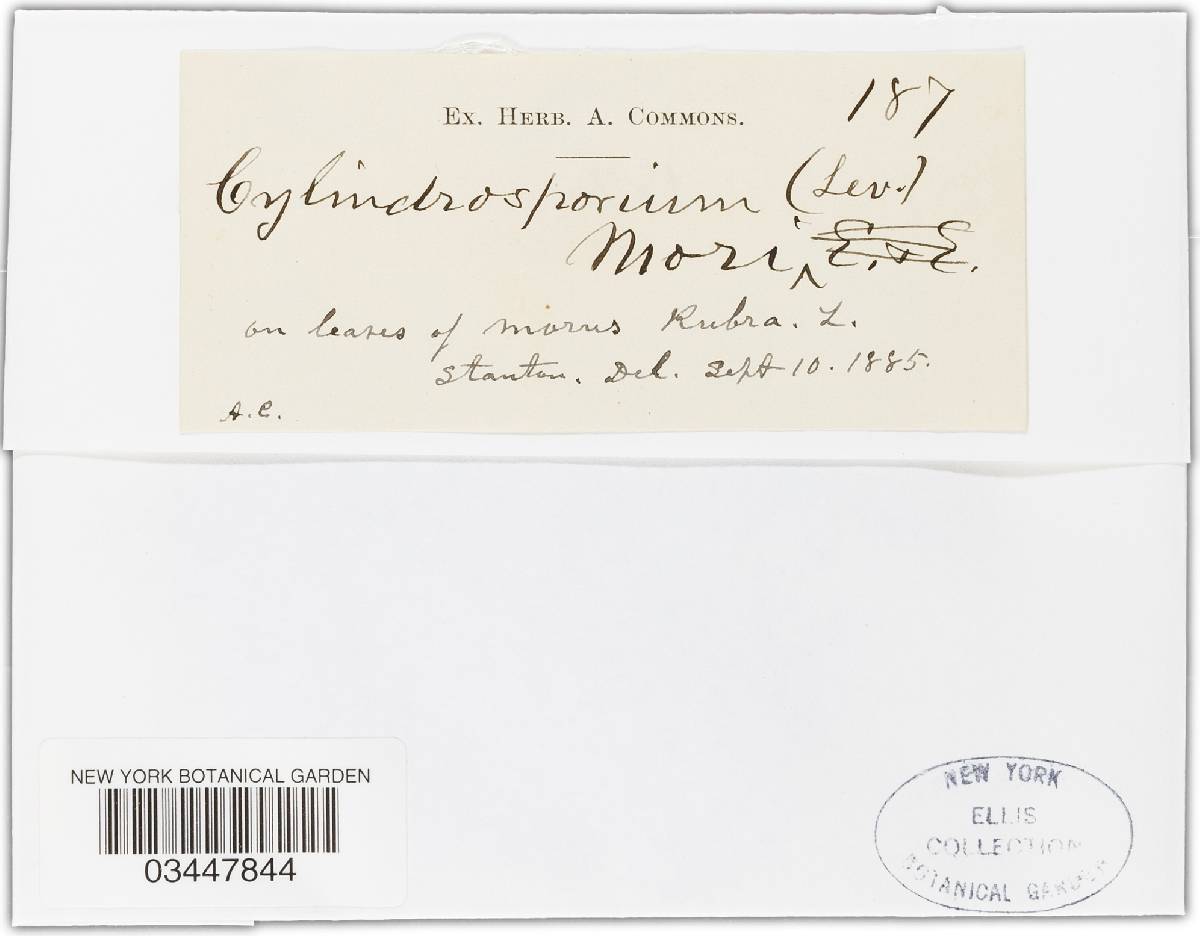 187
EX. HERB. A. COMMONS.
Cylindrosporium (Lev.)
Mori, E. & E.
on leaves of morus Rubra. L.
Stanton. Del. Sept 10. 1885.
A. C.
NEW YORK BOTANICAL GARDEN
03447844
NEW YORK
ELLIS
COLLECTION
BOTANICAL GARDEN